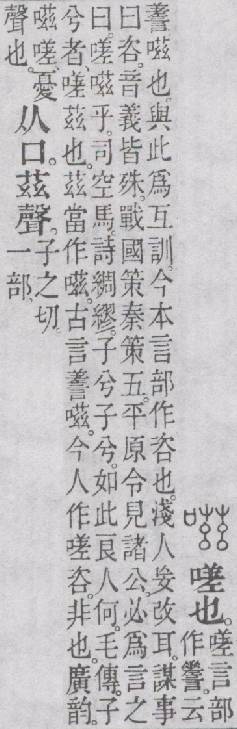 嗟也。嗟言部
作。云
嗞也。與此爲互訓。今本言部作咨也。淺人妄改耳。謀事
曰咨。音義皆殊。戰國策秦策五。平原令見諸公。必爲言之
曰。嗟嗞乎。司空馬。詩綢繆。子兮子兮。如此良人何。毛傳。子
兮者、嗟茲也。茲當作嗞。古言嗞。今人作嗟咨。非也。廣韵。
嗞嗟、憂
聲也。
从口。茲聲。
子之切。
一部。